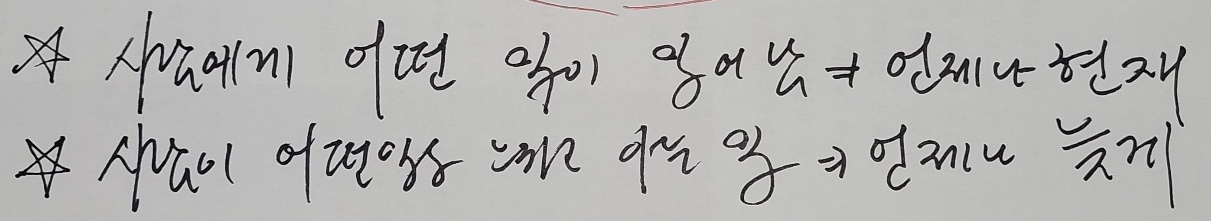 ☆ 사람에게 어떤 일이 일어남 ⇒ 언제나 현재
☆ 사람이 어떤일을 하는 일 ⇒ 언제나 늦게